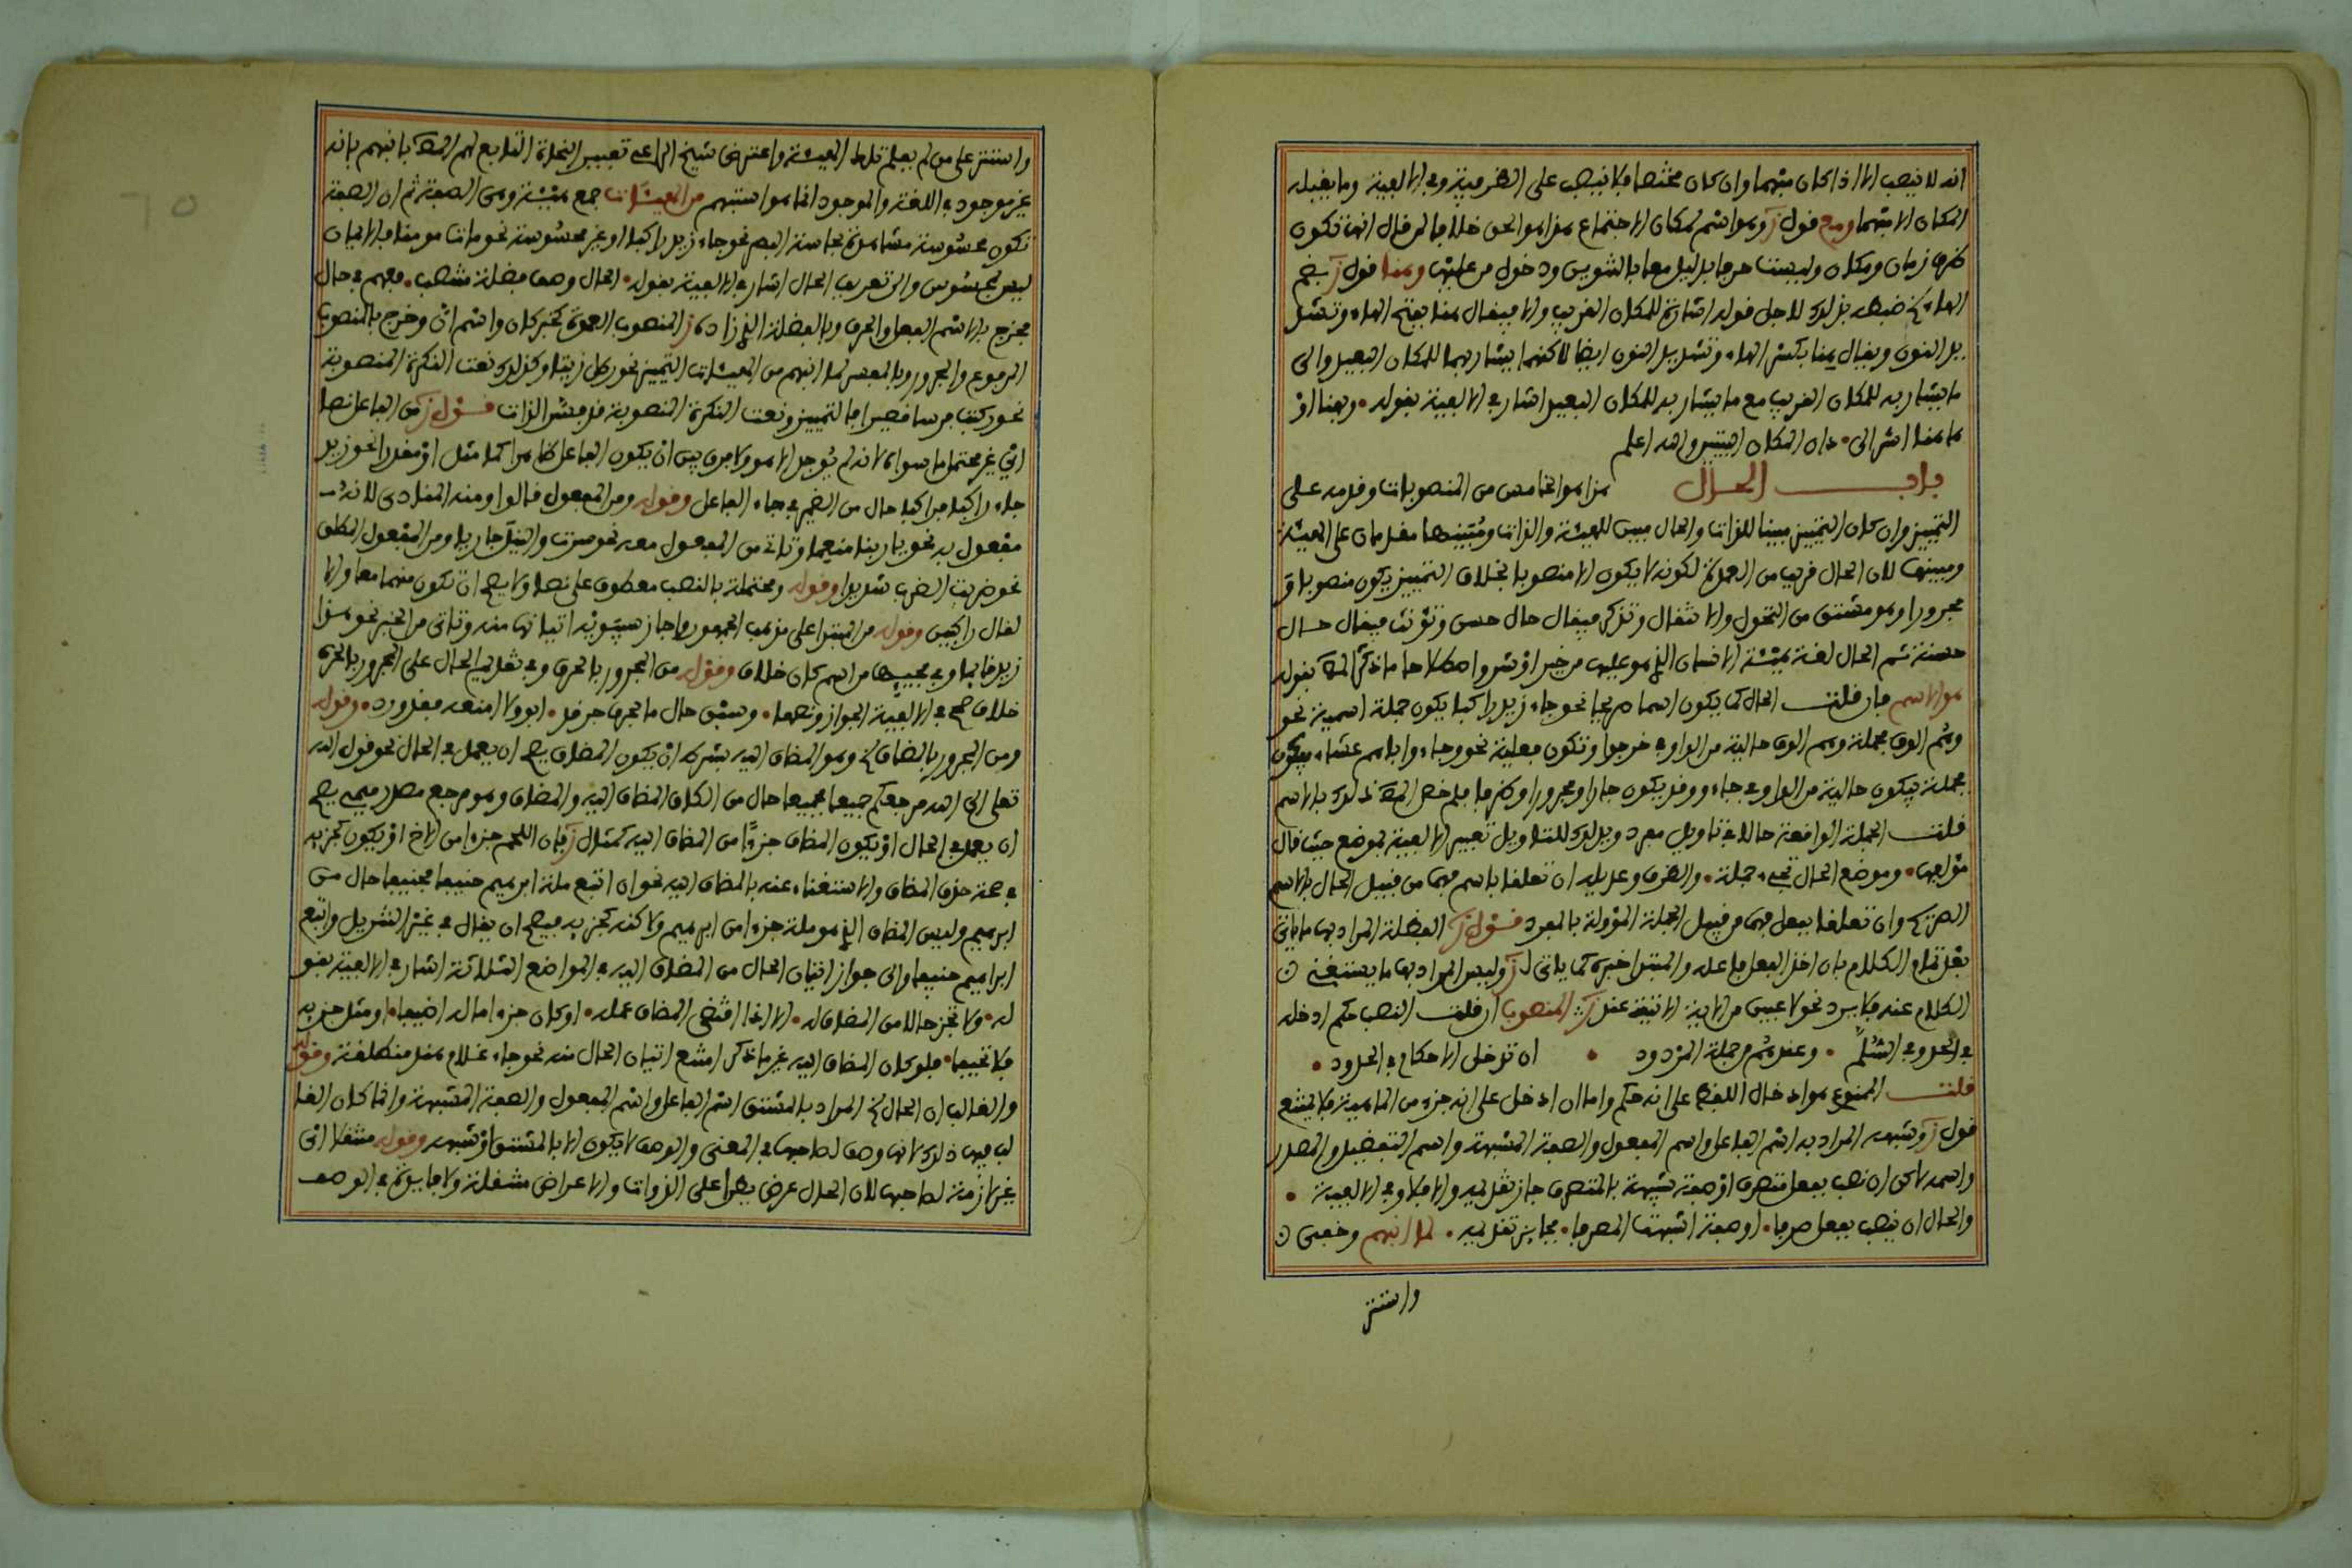 انه لا ينصب الا اذا كان مبهما وان كان مختصا فلا ينصب على الظرفية وفي الالفية وما يقبله
المكان الا مبهما وهو اسم لمكان الاجتماع هذا هو الحق خلافا لمن قال انها تكون
ظرف زمان ومكان وليست حرفا بدليل معا بالتنوين ودخول من عليها وهنا قول ز بضم
الهاء ضبطه بذلك لاجل قوله اشارة للمكان القريب والا فيقال هنا بفتح الهاء وتشد
يد النون ويقال هنا بكسر الهاء وتشديد النون ايضا لاكنهما يشار بهما للمكان البعيد والى
ما يشار به للمكان القريب مع ما يشار به للمكان البعيد اشار في الالفية بقوله • وبهنا او
هاهنا اشر الى • دان المكان البيتين والله اعلم
باب الحال هذا هو الخامس من المنصوبات وقدمه على
التمييز وان كان التمييز مبينا للذات والحال مبين للهيئة والذات ومبينها مقدمان على الهيئة
ومبينها لان الحال قريب من العمدة لكونه لا يكون الا منصوبا بخلاف التمييز يكون منصوبا و
مجرورا وهو مشتق من التحول والانتقال وتذكر فيقال حال حسن وتؤنث فيقال حال
حسنة ثم الحال لغة هيئة الانسان الذي هو عليها من خير او شر واصطلاحا ما ذكر المص بقوله
هو الاسم فان قلت الحال كما يكون اسما صريحا نحو جاء زيد راكبا يكون جملة اسمية نحو
وهم الوف فجملة وهم الوف حالية من الواو في خرجوا وتكون فعلية نحو وجاءوا اباهم عشاء يبكون
فجملة يبكون حالية من الواو في جاءوا وقد يكون جارا ومجرورا وظرفا فلم خص المص ذلك بالاسم
قلت الجملة الواقعة حالا في تاويل مفرد ويدلك للتاويل تعبير الالفية بموضع حيث قال
مؤلفها • وموضع الحال تجيء جملة • والظرف وعديله ان تعلقا باسم فهما من قبيل الحال بالاسم
الصريح وان تعلقا بفعل فهما من قبيل الجملة المؤولة بالمفرد قول ز الفضلة المراد بها ما ياتي
بعد تمام الكلام بان اخذ الفعل فاعله والمبتدا خبره كما ياتي لز وليس المراد بها ما يستغني
الكلام عنه فلا يرد نحو لاعبين من الاية الاتية عند ز المنصوب ان قلت النصب حكم ادخله
في الحد وفي السلم • وعندهم من جملة المردود • ان تدخل الاحكام في الحدود •
قلت الممنوع هو ادخال اللفظ على انه حكم واما ان ادخل على انه جزء من الماهية فلا يمتنع
قول ز وشبهه المراد به اسم الفاعل واسم المفعول والصفة المشبهة واسم التفضيل والمصدر
واسمه لاكن ان نصب بفعل متصرف او صفة شبيهة بالمتصرف جاز تقديمه والا فلا وفي الالفية •
والحال ان ينصب بفعل صرفا • او صفة اشبهت المصرفا • فجائز تقديمه • لما انبهم وخفى
واستتر
واستتر على من لم يعلم تلك الهيئة واعترض شيخ الراعي تعبير النحاة التابع لهم المص بانبهم بانه
غير موجود في اللغة والموجود انما هو استبهم من الهيئات جمع هيئة وهي الصفة ثم ان الصفة
تكون محسوسة مشاهدة بحاسة البصر نحو جاء زيد راكبا او غير محسوسة نحو مات مومنا فالايمان
ليس بمحسوس والى تعريف الحال اشار في الالفية بقوله • الحال وصف فضلة منتصب • مفهم في حال
فخرج بالاسم الفعل والحرف وبالفضلة الذي زاده ز المنصوب العمدة كخبر كان واسم ان وخرج بالمنصوب
المرفوع والمجرور وبالمفسر لما انبهم من الهيئات التمييز نحو رطل زيتا وكذلك نعت النكرة المنصوبة
نحو ركبت فرسا قصيرا فالتمييز ونعت النكرة المنصوبة قد يفسر الذات قول ز من الفاعل نصا
اي غير محتمل ما سواه لانه لم يوجد الا هو ولا فرق بين ان يكون الفاعل ظاهرا كما مثل او مقدرا نحو زيد
جاء راكبا فراكبا حال من الضمير في جاء الفاعل وقوله ومن المفعول قالوا ومنه المنادى لانه
مفعول به نحو يا ربنا منعما وتاتي من المفعول معه نحو سرت والنيل جاريا ومن المفعول المطلق
نحو ضربت الضرب شديدا وقوله ومحتملة بالنصب معطوف على نصا ولا يصح ان تكون منهما معا والا
لقال راكبين وقوله من المبتدا على مذهب الجمهور واجاز سيبويه اتيانها منه وتاتي من الخبر نحو هذا
زيد قائما وفي مجيئها من اسم كان خلاف وقوله من المجرور بالحرف وفي تقديم الحال على المجرور بالحرف
خلاف صحح في الالفية الجواز ونصها • وسبق حال ما بحرف جر قد • ابوا ولا امنعه فقد ورد • وقوله
ومن المجرور بالمضاف وهو المضاف اليه بشرط ان يكون المضاف يصح ان يعمل في الحال نحو قول الله
تعالى الى الله مرجعكم جميعا فجميعا حال من الكاف المضاف اليه والمضاف وهو مرجع مصدر ميمي يصح
ان يعمل في الحال او يكون المضاف جزءا من المضاف اليه كمثال ز فان اللحم جزء من الاخ او يكون كجزئه
في صحة حذف المضاف والاستغناء عنه بالمضاف اليه نحو ان اتبع ملة ابرهيم حنيفا فحنيفا حال من
ابرهيم وليس المضاف الذي هو ملة جزءا من ابرهيم ولاكنه كجزئه فيصح ان يقال في غير التنزيل واتبع
ابراهيم حنيفا والى جواز اتيان الحال من المضاف اليه في المواضع الثلاثة اشار في الالفية بقو
له • ولا تجز حالا من المضاف له • الا اذا اقتضى المضاف عمله • او كان جزء ما له اضيفا • او مثل جزئه
فلا تحيفا • فلو كان المضاف اليه غير ما ذكر امتنع اتيان الحال منه نحو جاء غلام هند منطلقة وقوله
والغالب ان الحال المراد بالمشتق اسم الفاعل واسم المفعول والصفة المشبهة وانما كان الغا
لب فيها ذلك لانها وصف لصاحبها في المعنى والوصف لا يكون الا بالمشتق او شبهه وقوله منتقلا اي
غير لازمة لصاحبها لان الحال عرض يطرا على الذوات والاعراض منتقلة ولا فائدة في الوصف